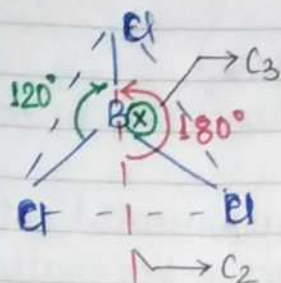 Cl
C₃
120°
B ⓧ 180°
Cl Cl
C₂